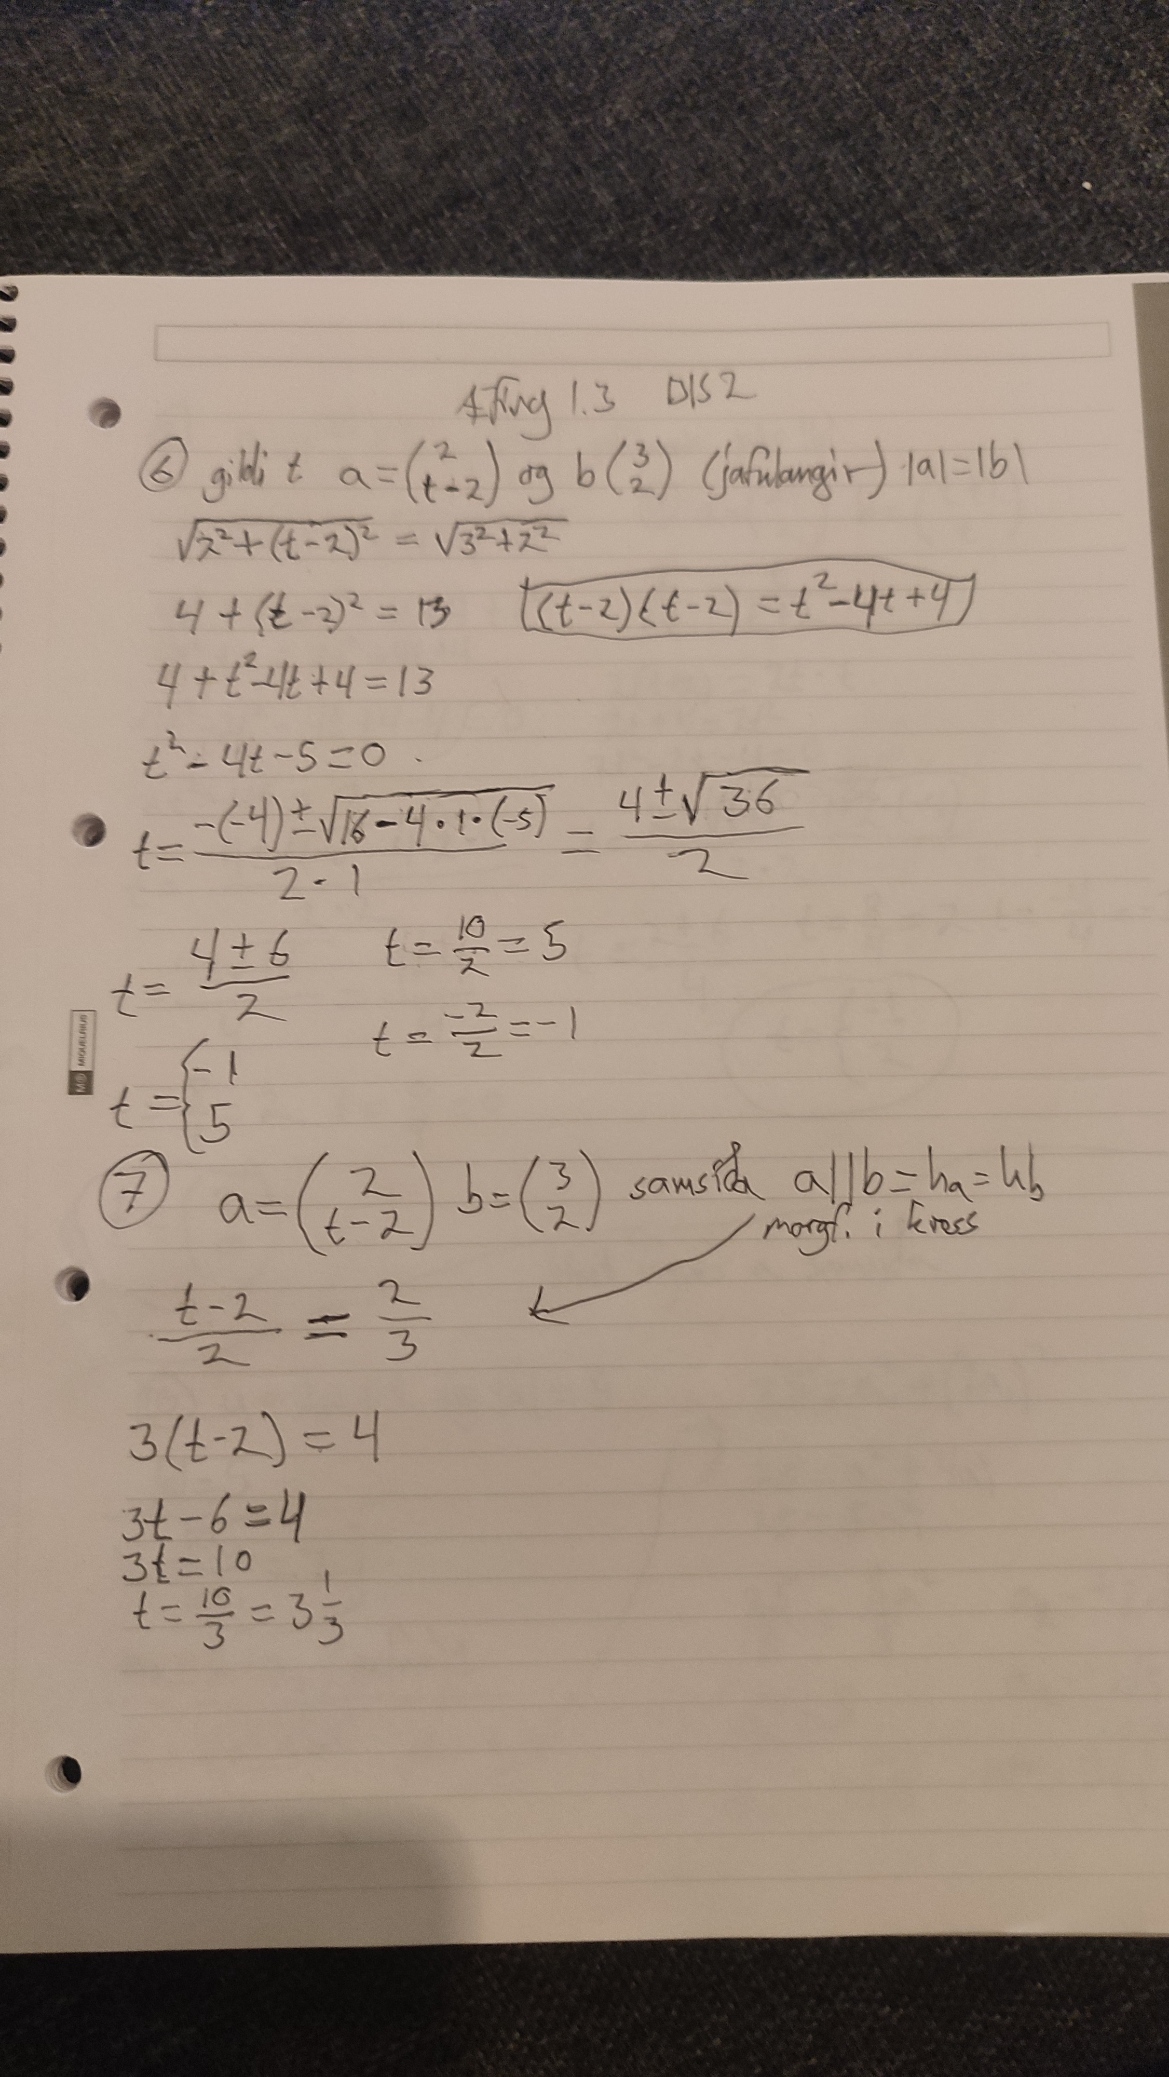 Æfing 1.3 DIS2
⑥ gildi t a=(2 t-2) og b(3 2) (jafnlangir) |a|=|b|
√2²+(t-2)² = √3²+2²
4+(t-2)²=13 (t-2)(t-2)=t²-4t+4
4+t²-4t+4=13
t²-4t-5=0
t= -(-4)±√16-4·1·(-5) / 2·1 = 4±√36 / 2
t= 4±6 / 2 t= 10/2 =5
t= -2/2 =-1
t={-1 5
⑦ a=(2 t-2) b=(3 2) samsíða a||b=ha=hb
margf. í kross
t-2 / 2 = 2/3
3(t-2)=4
3t-6=4
3t=10
t= 10/3 = 3 1/3
MIQUELRIUS